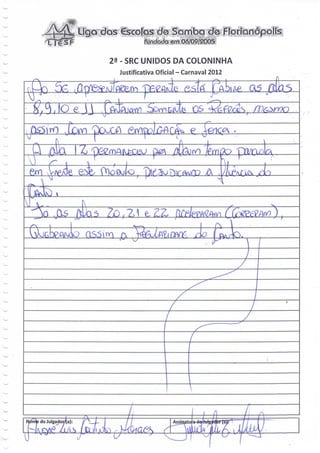 Liga das Escolas de Samba de Florianópolis
fundada em 06/09/2005
LIESF
2ª - SRC UNIDOS DA COLONINHA
Justificativa Oficial – Carnaval 2012
Ao SE APRESENTAREM PERANTE ESTA CABINE AS ALAS
8, 9, 10 e 11 CANTAVAM SOMENTE OS REFRÕES, MESMO
ASSIM COM POUCA EMPOLGAÇÃO E FORÇA.
A ALA 12 PERMANECEU POR ALGUM TEMPO PARADA
EM FRENTE ESTE MÓDULO, PREJUDICANDO A FLUÊNCIA DO
CANTO.
JÁ AS ALAS 20, 21 e 22 ACELERARAM (CORRERAM),
QUEBRANDO ASSIM A REGULARIDADE DO CANTO.
Nome do Julgador(a):
Assinatura do Julgador (a):
Luis